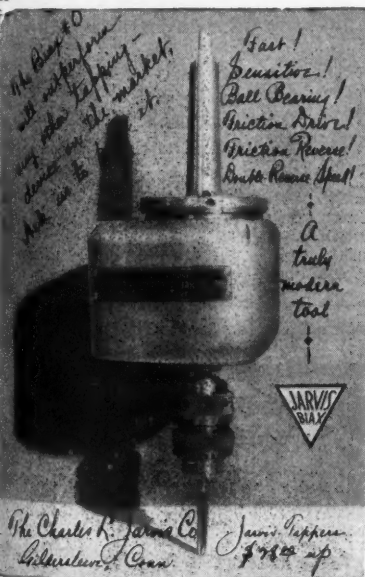 The Biax #0
will outperform
any other tapping
device on the market.
Ask us to prove it.
Fast!
Sensitive!
Ball Bearing!
Friction Drive!
Friction Reverse!
Double Reverse Speed!
A
truly
modern
tool
JARVIS
BIAX
The Charles L. Jarvis Co
Gildersleeve, Conn.
Jarvis Tappers
up